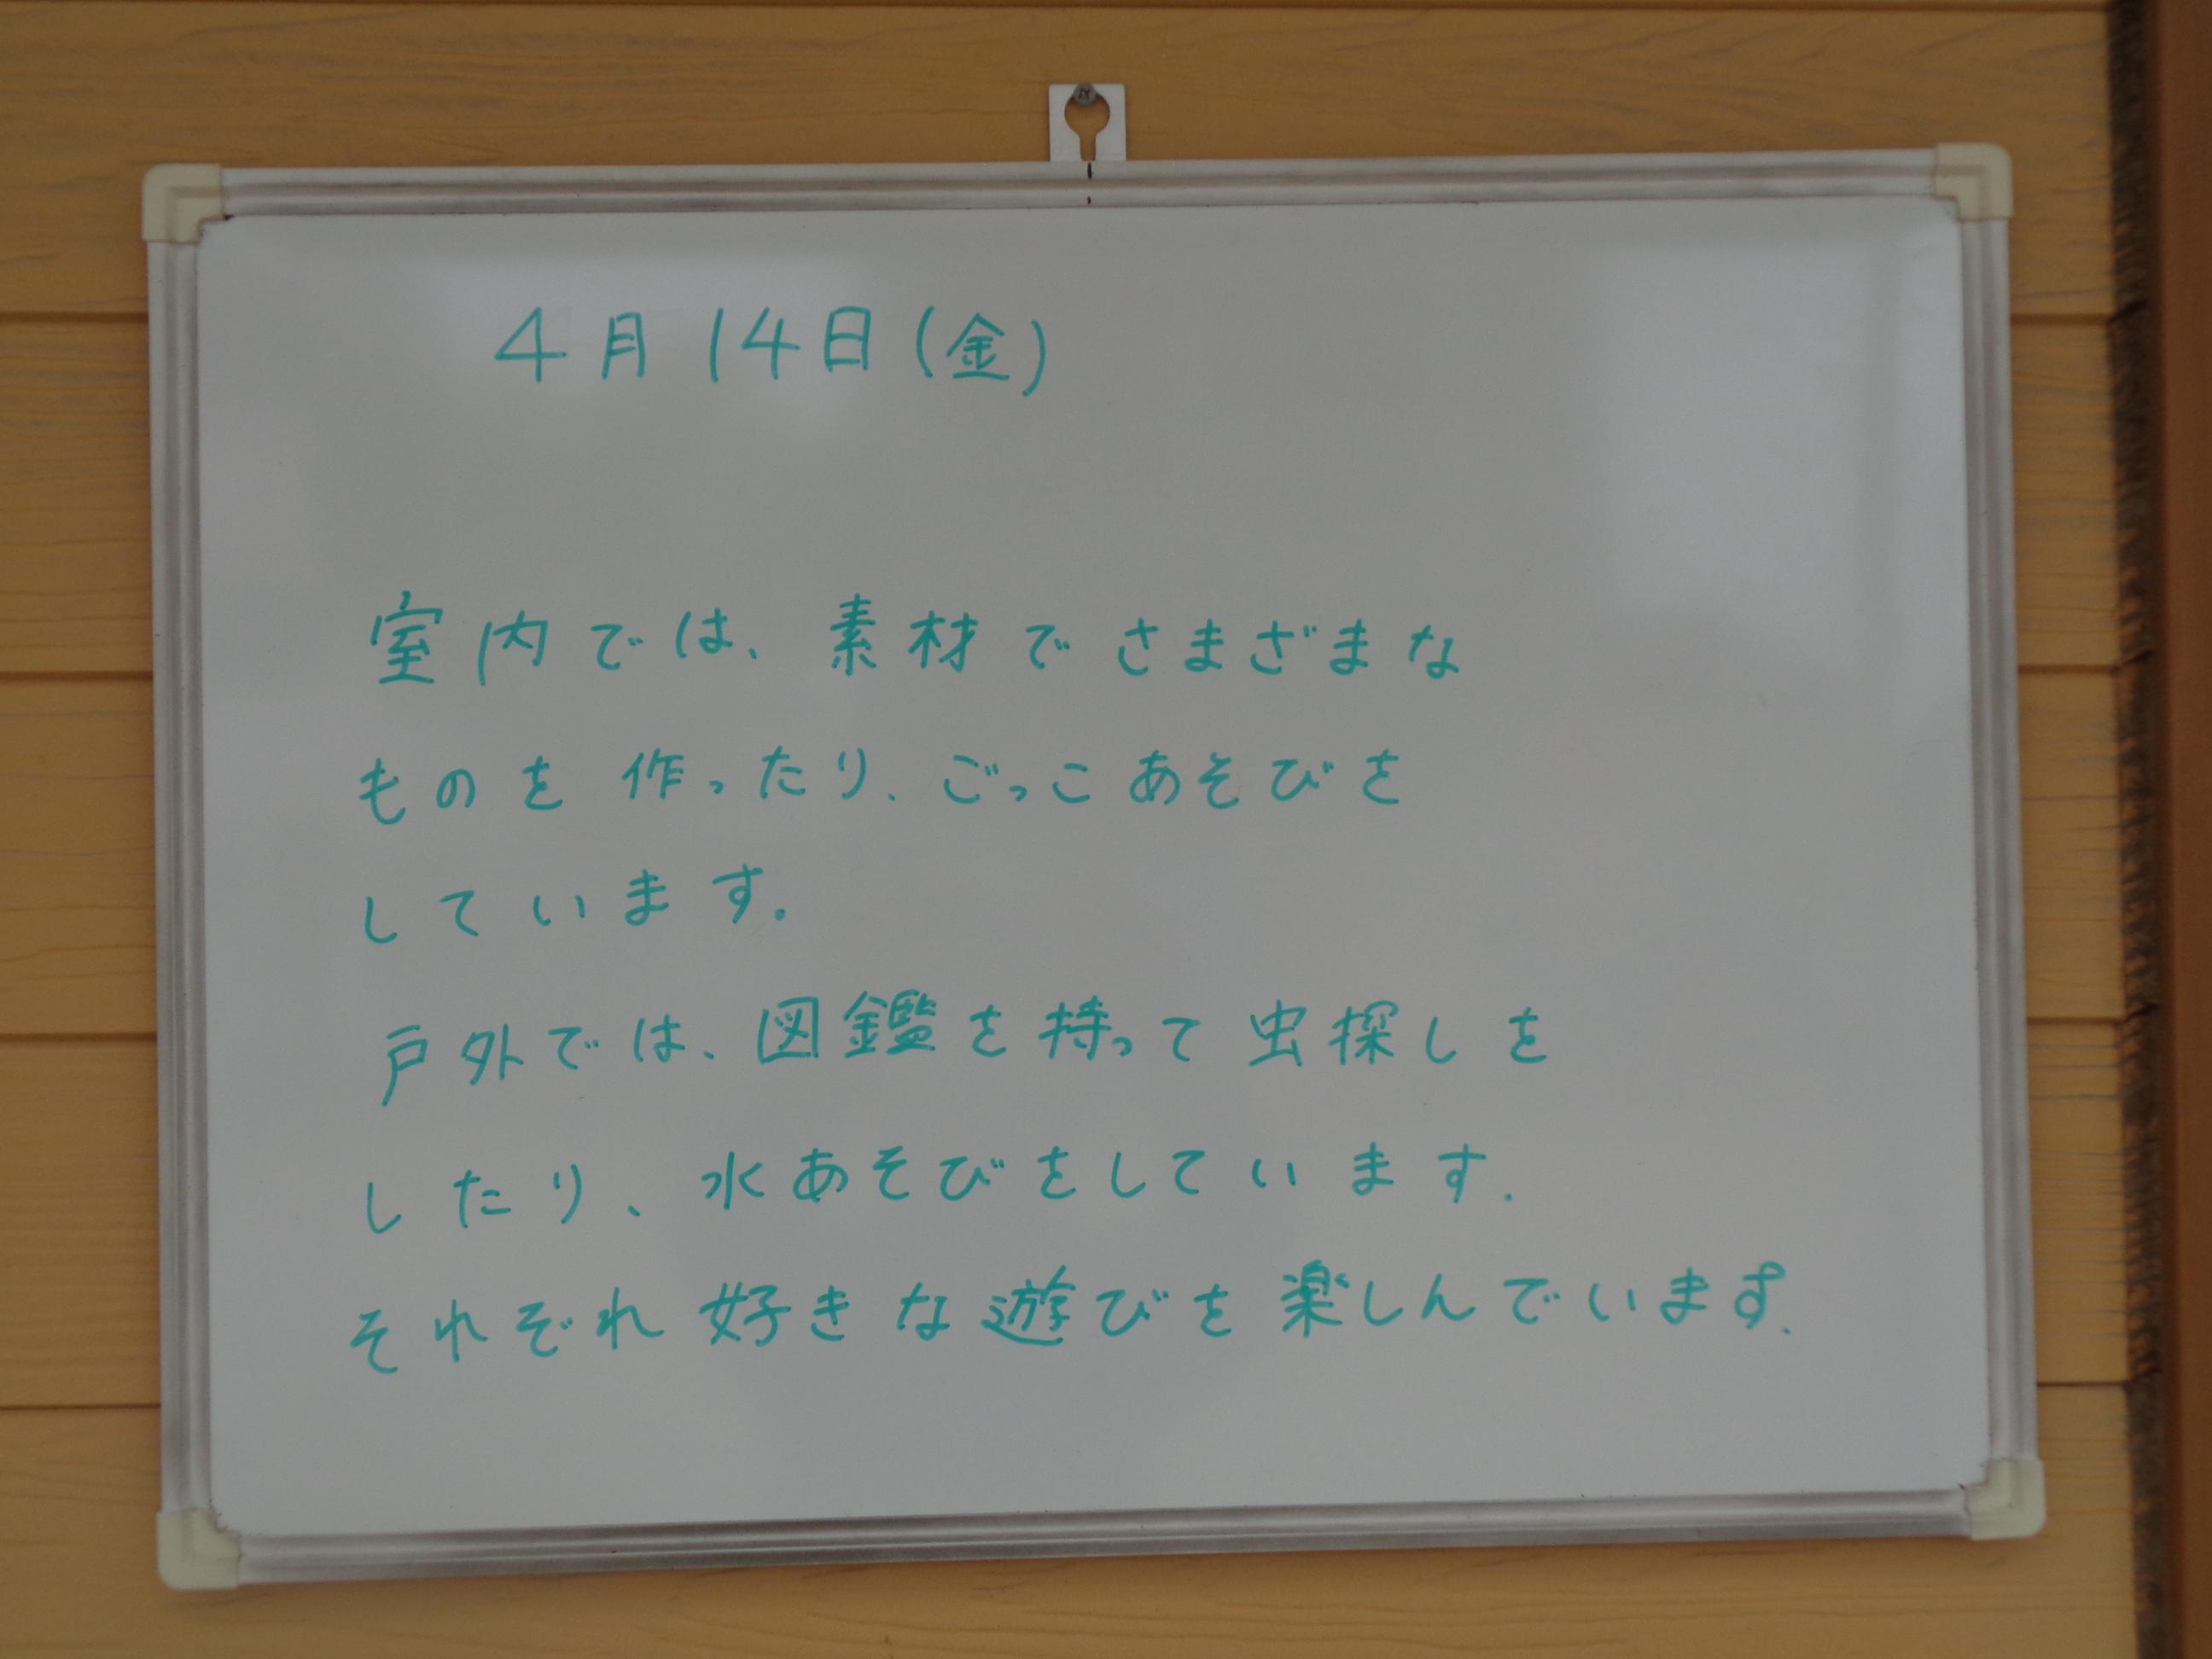 4月14日(金)
室内では、素材でさまざまな
ものを作ったり、ごっこあそびを
しています。
戸外では、図鑑を持って虫探しを
したり、水あそびをしています.
それぞれ好きな遊びを楽しんでいます.